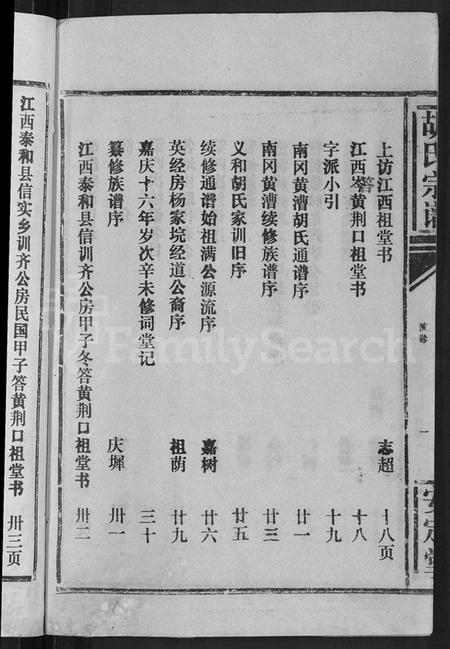 胡氏宗谱
首卷
一
安定堂
上访江西祖堂书 志超 十八页
江西答黄荆口祖堂书 十八
字派小引 十九
南冈黄漕胡氏通谱序 廿一
南冈黄漕续修族谱序 廿三
义和胡氏家训旧序 廿五
续修通谱始祖满公源流序 嘉树 廿六
英经房杨家垸经道公裔序 祖荫 廿九
嘉庆十六年岁次辛未修词堂记 三十
纂修族谱序 庆墀 卅一
江西泰和县信训齐公房甲子冬答黄荆口祖堂书 卅二
江西泰和县信实乡训齐公房民国甲子答黄荆口祖堂书 卅三页
FamilySearch